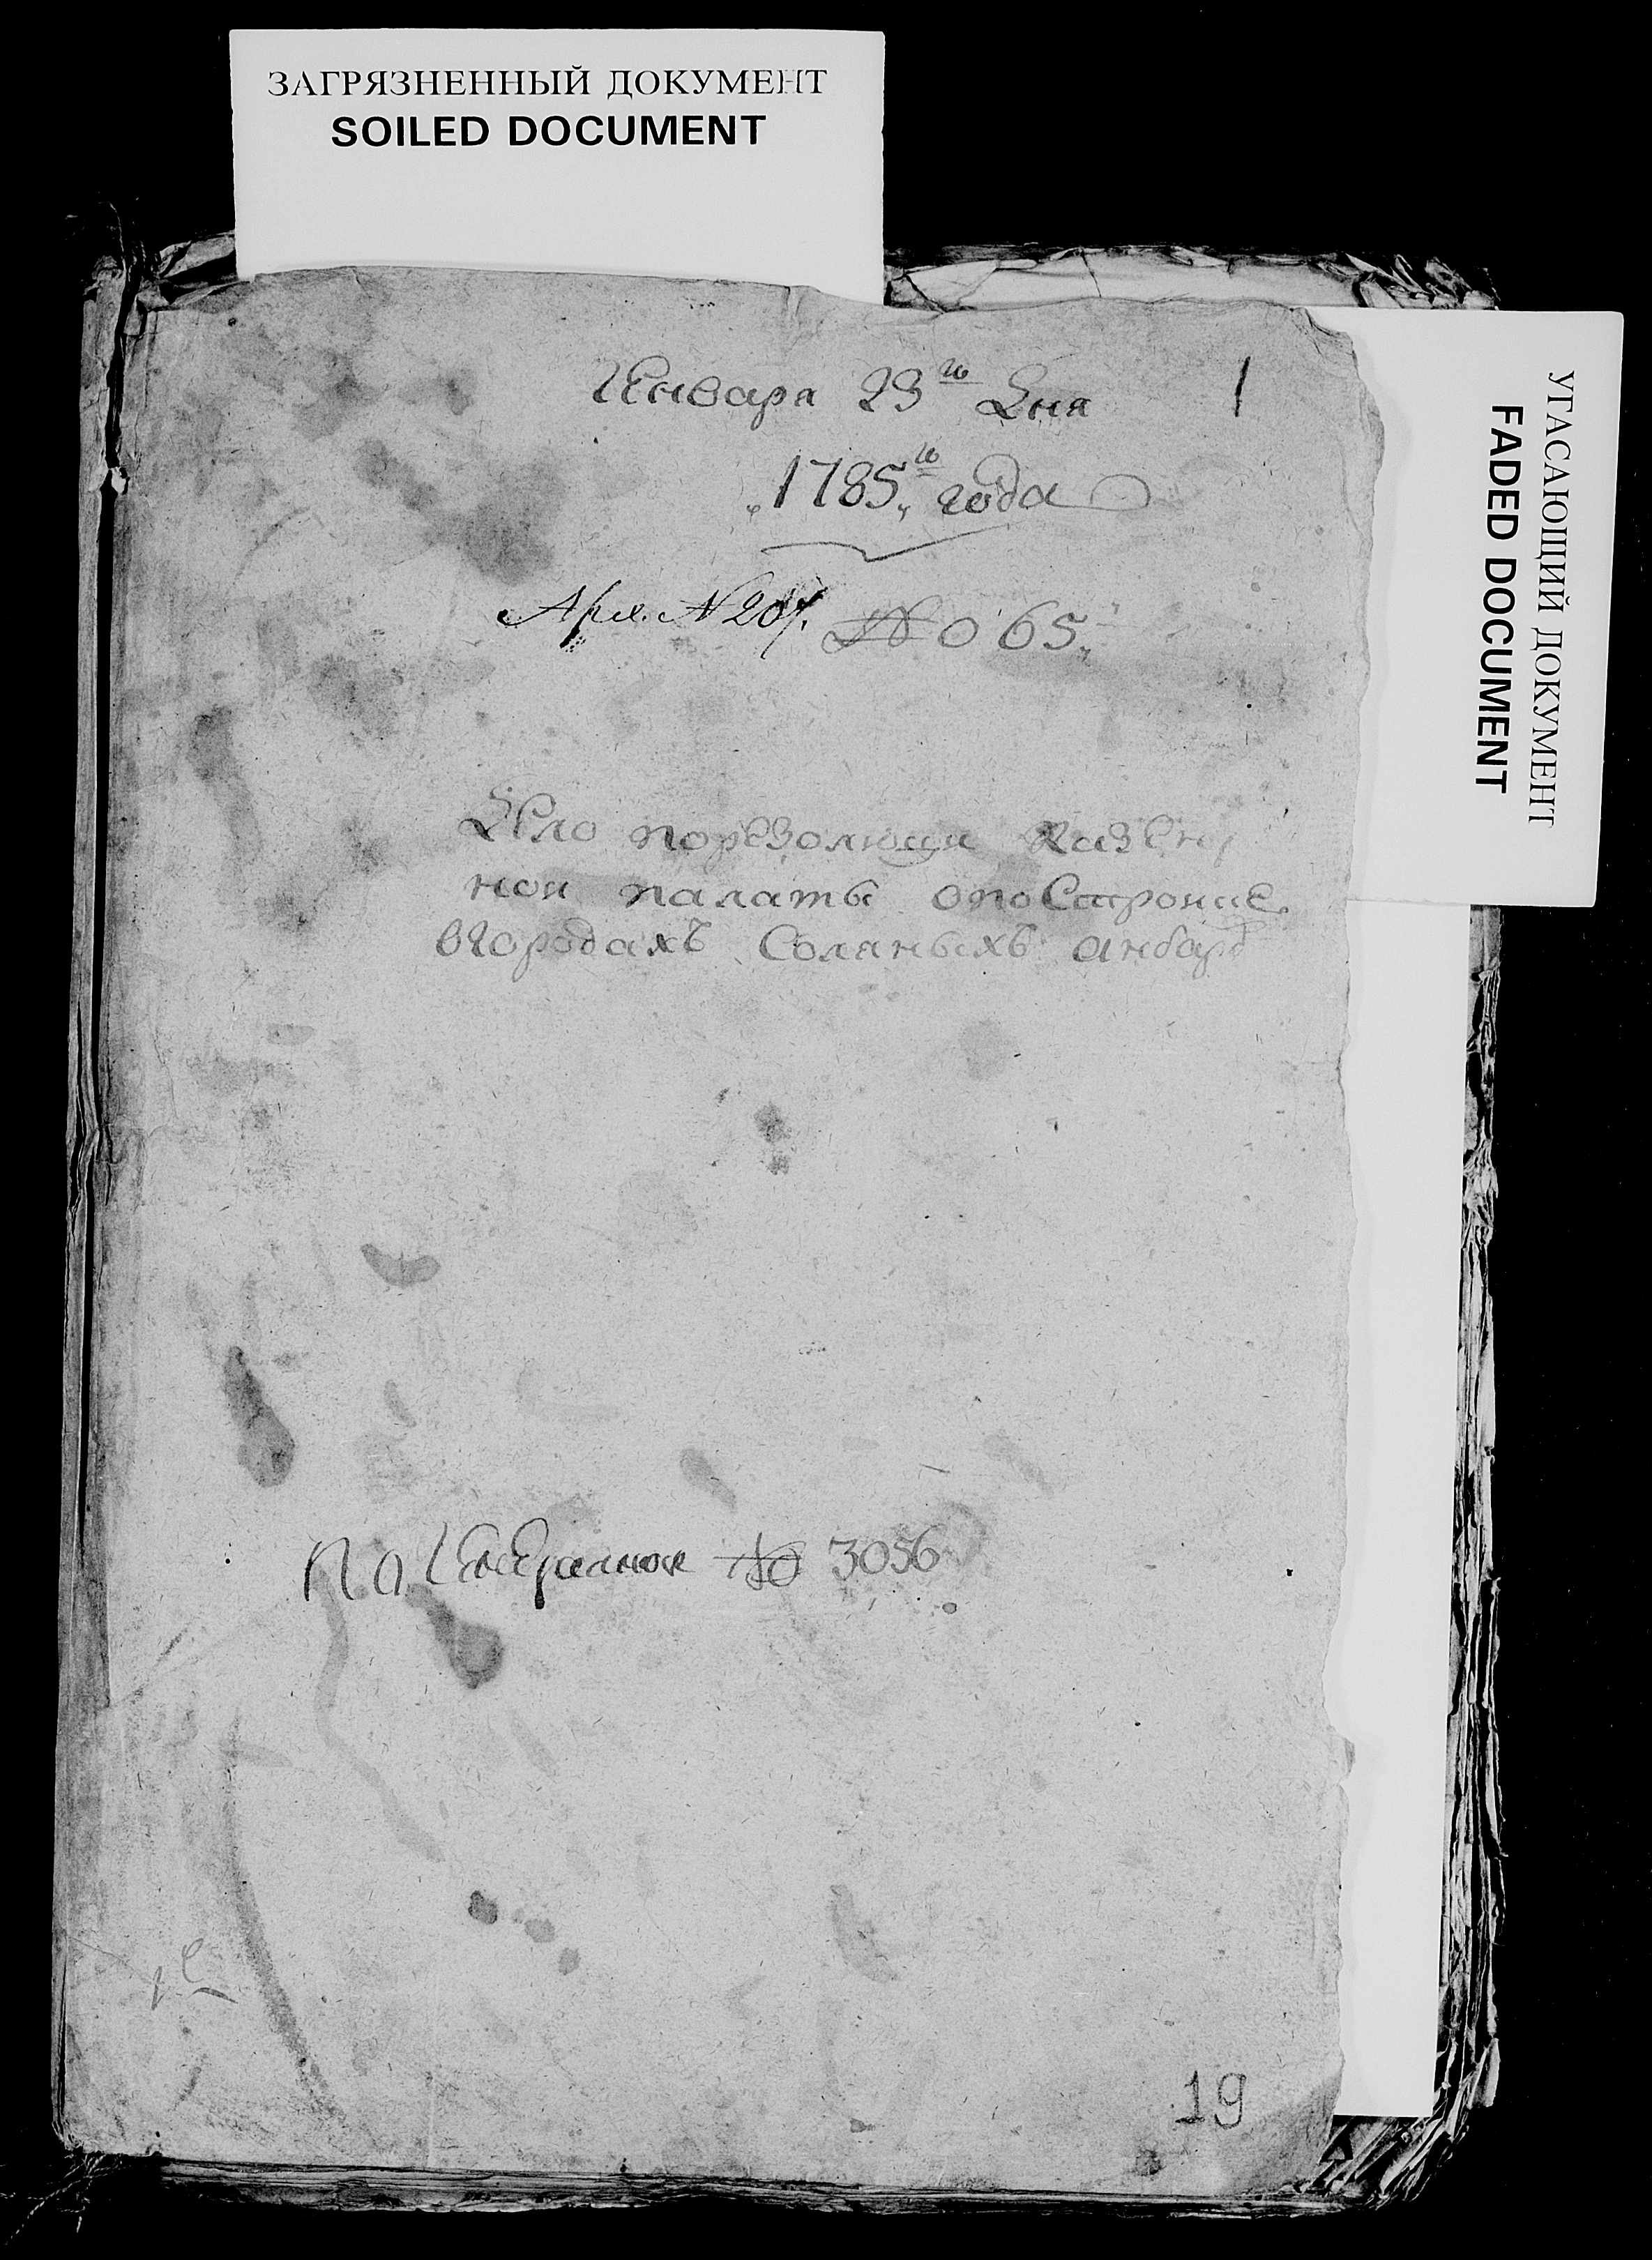 ЗАГРЯЗНЕННЫЙ ДОКУМЕНТ
SOILED DOCUMENT
УГАСАЮЩИЙ ДОКУМЕНТ
FADED DOCUMENT
Генваря 23го дня
1
1785го года
Арх. №
№ 65
Дело порезолюции Казен
ной палаты опостроике
вгородахъ Соляныхъ анбаръ
По № 3056
19